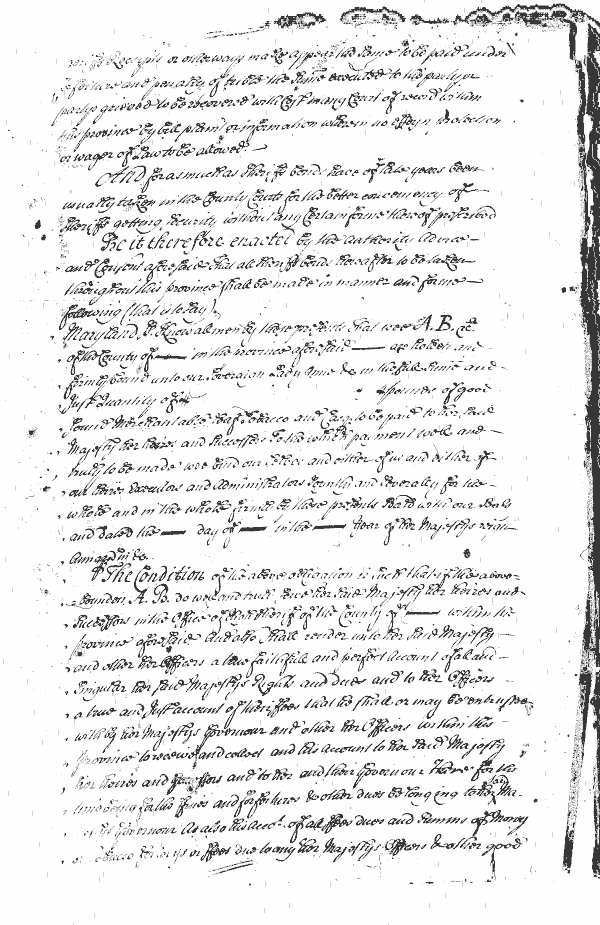 Receipts or otherways make appear the same to be paid under
forfeiture and penalty of treble the same executed to the party or
partys grieved to be recovered with Cost in any Court of record within
this province by bill plaint or information wherein no Essoyn protection
or wager of Law to be allowed. —
And forasmuch as Sheriffs bonds have of late years been
usually taken in the County Courts for the better conveniency of
Sheriffs getting Security without any Certain forme thereof prescribed
Be it therefore enacted by the authority advice —
and Consent aforesaid that all Sheriffs bonds hereafter to be taken
throughout this province shall be made in manner and forme —
following (that is to say)
Maryland ss. Know all men by these presents that wee A. B. &c.
of the County of — in the province aforesaid — are holden and
firmly bound unto our Sovereign Lady Anne &c in the full Sume and —
Just Quantity of — pounds of good
Sound Merchantable leaf Tobacco and Cask to be paid to her said
Majesty her heires and Successors To the which payment well and —
truly to be made wee bind our selves and either of us and either of
our heires Executors and Administrators Joyntly and Severally for the —
whole and in the whole firmly by these presents Seald with our Seals
and dated the — day of — in the — year of her Majestys reign
Annoq Dni &c.
The Condition of the above obligation is Such that if the above-
bounden A. B. do well and truly serve her said Majesty her heires and
Successors in the Office of Sheriff of the County of — within the
province aforesaid And also Shall render unto her said Majesty —
and other her Officers a true faithfull and perfect account of all and —
Singular her said Majestys Rights and dues and to her Officers
a true and Just account of their ffees that he shall or may be entrusted
with by her Majestys Governour and other her Officers within this
Province to receive and collect and his account to her said Majesty
her heires and Successors and to her and their Governour there for the
time being for the ffines and forfeitures & other dues belonging to her said Ma-
Governour As also his Acct. of all ffees dues and Summs of Money
or tobacco or ffees due to any her Majestys Officers & other good